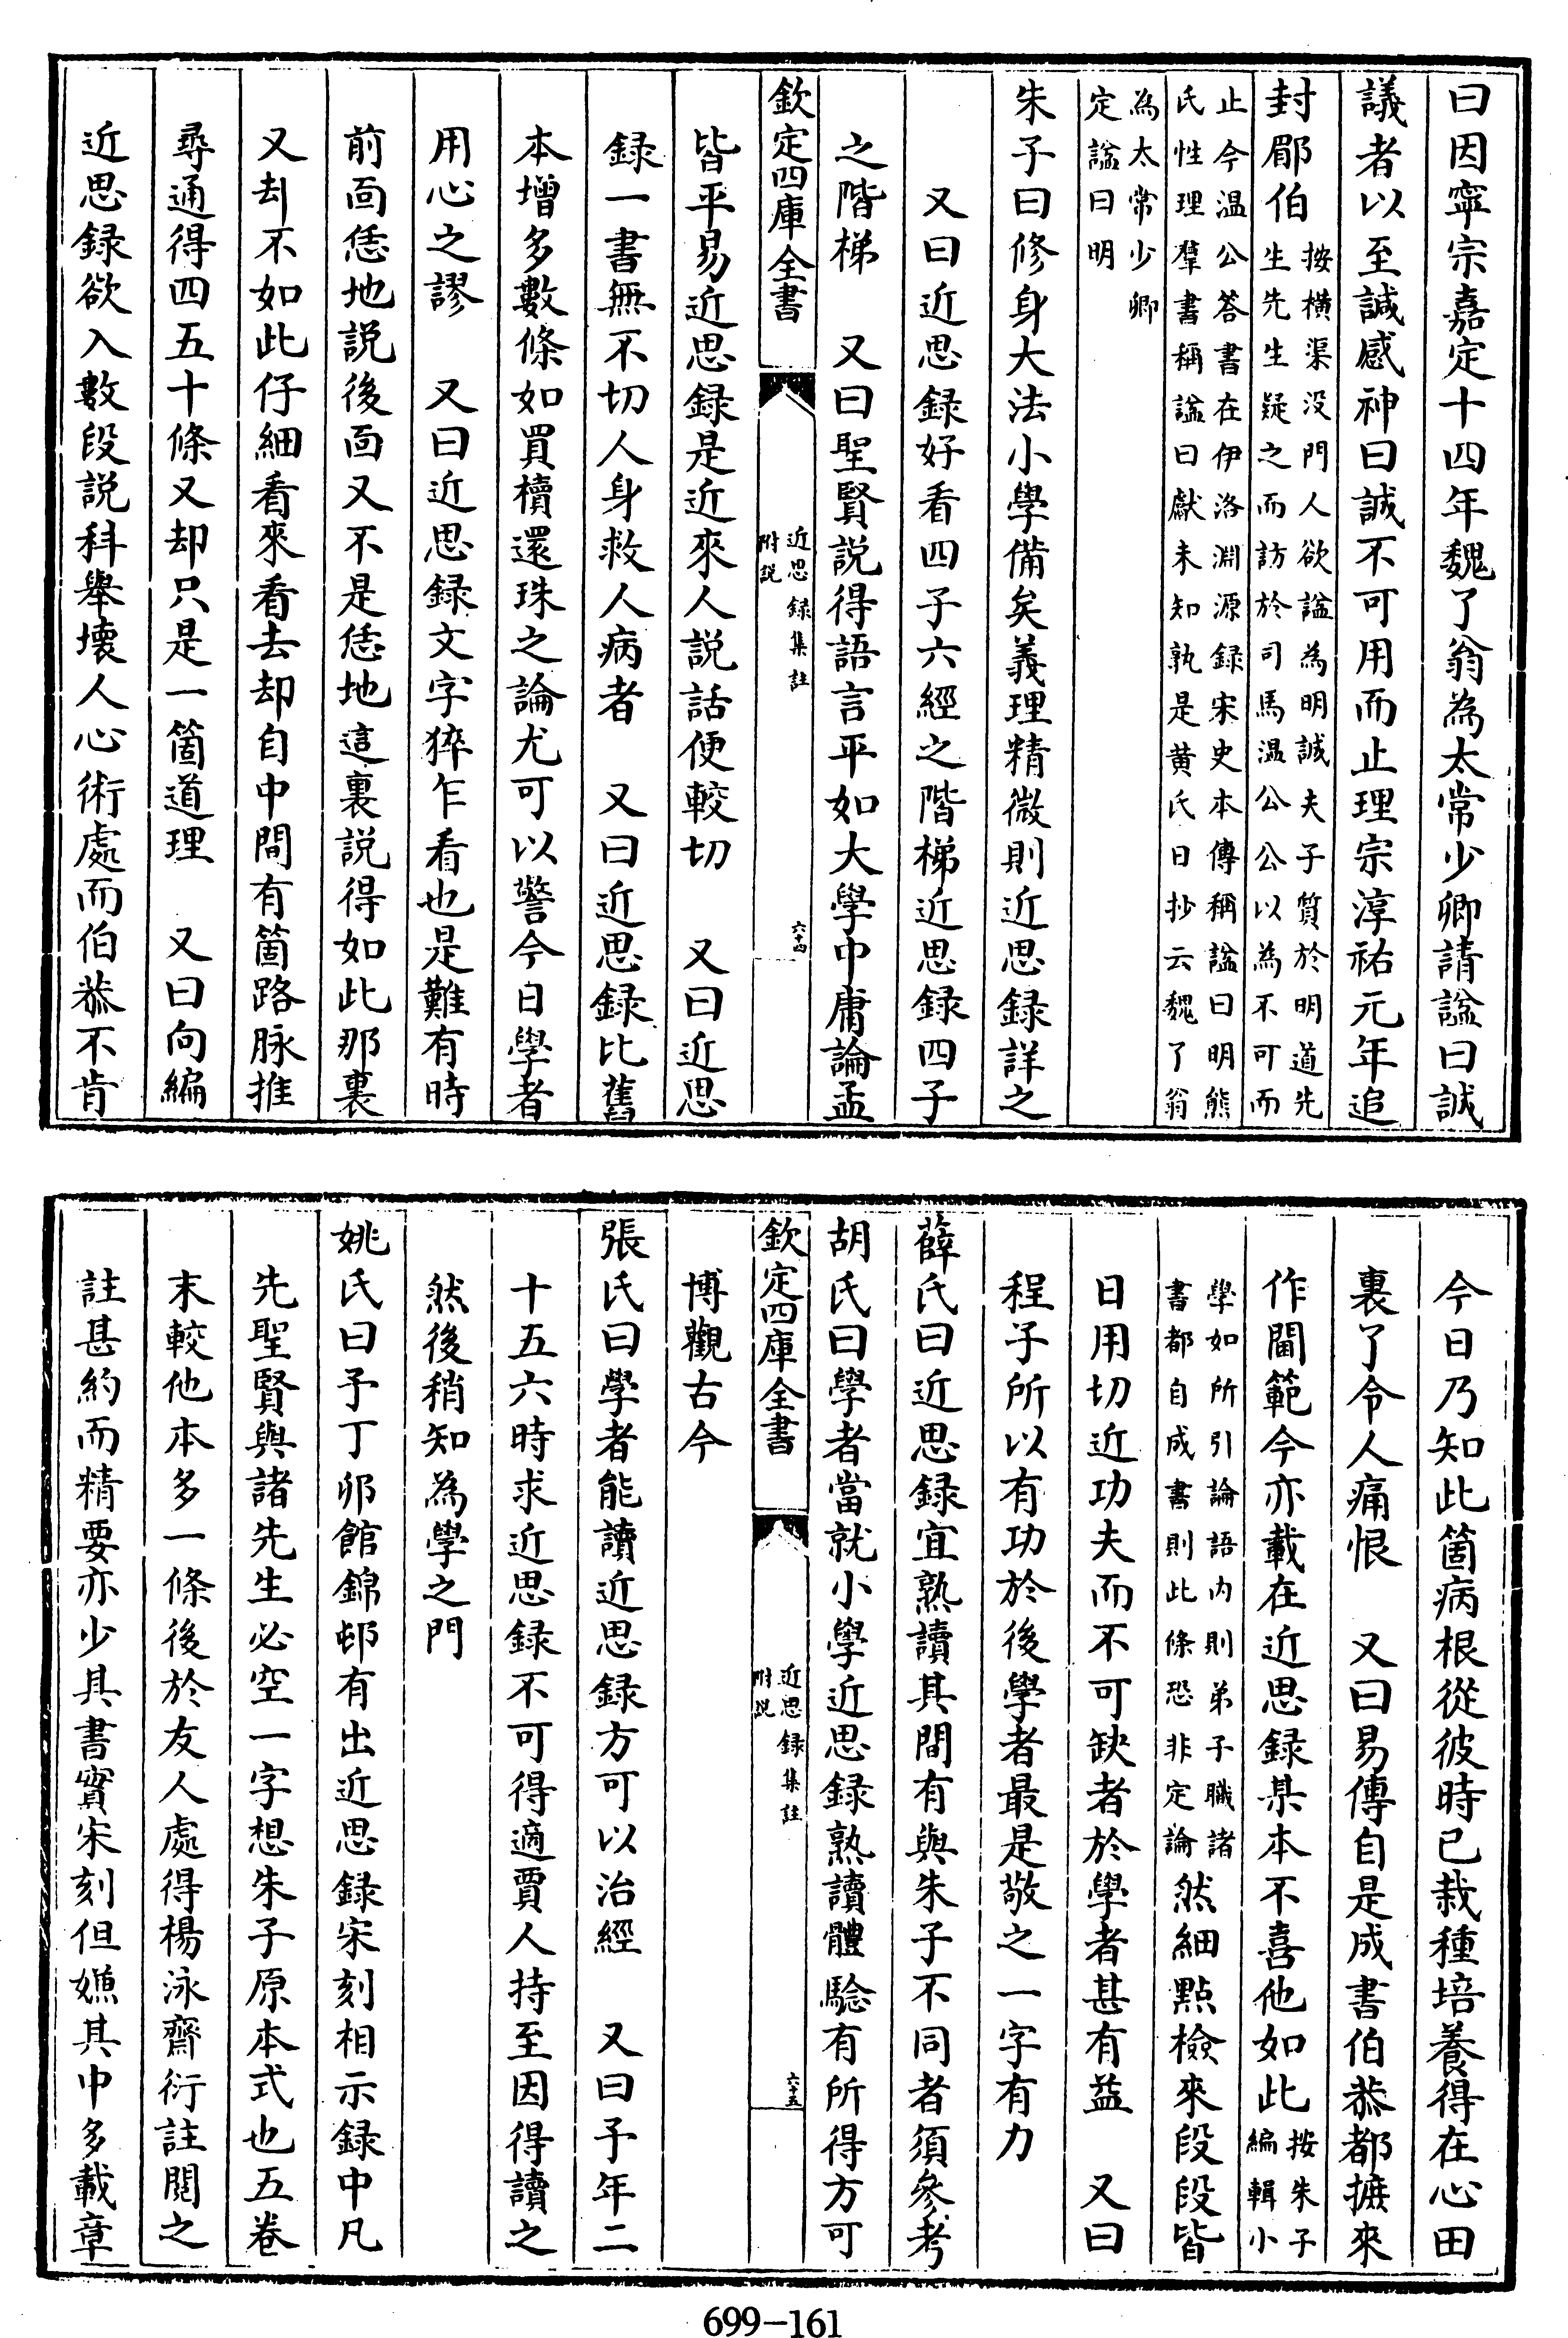 曰因寧宗嘉定十四年魏了翁為太常少卿請諡曰誠
議者以至誠感神曰誠不可用而止理宗淳祐元年追
封郿伯按橫渠沒門人欲諡為明誠夫子質於明道先
生先生疑之而訪於司馬温公公以為不可而
止今温公答書在伊洛淵源録宋史本傳稱諡曰明熊
氏性理羣書稱諡曰獻未知孰是黄氏日抄云魏了翁
為太常少卿
定諡曰明
朱子曰修身大法小學備矣義理精微則近思録詳之
又曰近思録好看四子六經之階梯近思録四子
之階梯　又曰聖賢説得語言平如大學中庸論孟
欽定四庫全書
近思録集註
附説
六十四
皆平易近思録是近來人説話便較切　又曰近思
録一書無不切人身救人病者　又曰近思録比舊
本增多數條如買櫝還珠之論尤可以警今日學者
用心之謬　又曰近思録文字猝乍看也是難有時
前面恁地説後面又不是恁地這裏説得如此那裏
又刦不如此仔細看來看去却自中間有箇路脉推
尋通得四五十條又却只是一箇道理　又曰向編
近思録欲入數段説科舉壞人心術處而伯恭不肯
今日乃知此箇病根從彼時已栽種培養得在心田
裏了令人痛恨　又曰易傳自是成書伯恭都摭來
作閫範今亦載在近思録某本不喜他如此按朱子
編輯小
學如所引論語内則弟子職諸
書都自成書則此條恐非定論然細點檢來段段皆
日用切近功夫而不可缺者於學者甚有益　又曰
程子所以有功於後學者最是敬之一字有力
薛氏曰近思録宜熟讀其間有與朱子不同者須參考
胡氏曰學者當就小學近思録熟讀體驗有所得方可
欽定四庫全書
近思録集註
附説
六十五
博觀古今
張氏曰學者能讀近思録方可以治經　又曰予年二
十五六時求近思録不可得適賈人持至因得讀之
然後稍知為學之門
姚氏曰予丁卯館錦邨有出近思録宋刻相示録中凡
先聖賢與諸先生必空一字想朱子原本式也五卷
末較他本多一條後於友人處得楊泳齋衍註閱之
註甚約而精要亦少具書實宋刻但嫌其中多載章
699-161